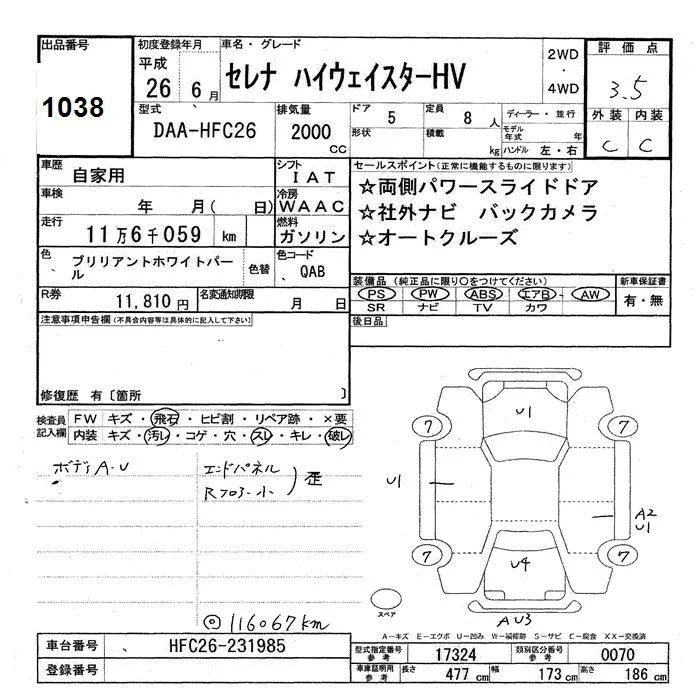 出品番号
1038
初度登録年月
平成
26 年 6 月
車名・グレード
セレナ ハイウェイスターHV
2WD
・
4WD
評価点
3.5
外装 内装
C C
型式
DAA-HFC26
排気量
2000
CC
ドア 5
形状
定員 8 人
積載 kg
ディーラー・並行
モデル年式 年
ハンドル 左・右
車歴
自家用
シフト
IAT
車検
年 月( 日)
冷房
WAAC
走行
11万6千059 km
燃料
ガソリン
色
ブリリアントホワイトパール
色替
色コード
QAB
R券
11,810円
名変通知期限
月 日
セールスポイント(正常に機能するものに限ります)
☆両側パワースライドドア
☆社外ナビ バックカメラ
☆オートクルーズ
装備品(純正品に限り○をつけてください)
PS・PW・ABS・エアB・AW
SR ナビ TV カワ
新車保証書
有・無
後日品
注意事項申告欄(不具合内容等は具体的に記入して下さい)
修復歴 有〔箇所 〕
検査員記入欄
FW キズ・飛石・ヒビ割・リペア跡・×要
内装 キズ・汚レ・コゲ・穴・スレ・キレ・破レ
ボディA-U
エンドパネル
Rフロア-小
歪
◎116067km
U1
7
7
U1
A2
U1
7
7
U4
スペア
AU3
A-キズ E-エクボ U-凹み W-補修跡 S-サビ C-腐食 XX-交換済
車台番号
HFC26-231985
登録番号
型式指定番号 参考
17324
類別区分番号 参考
0070
車庫証明用 参考
長さ 477 cm 幅 173 cm 高さ 186 cm